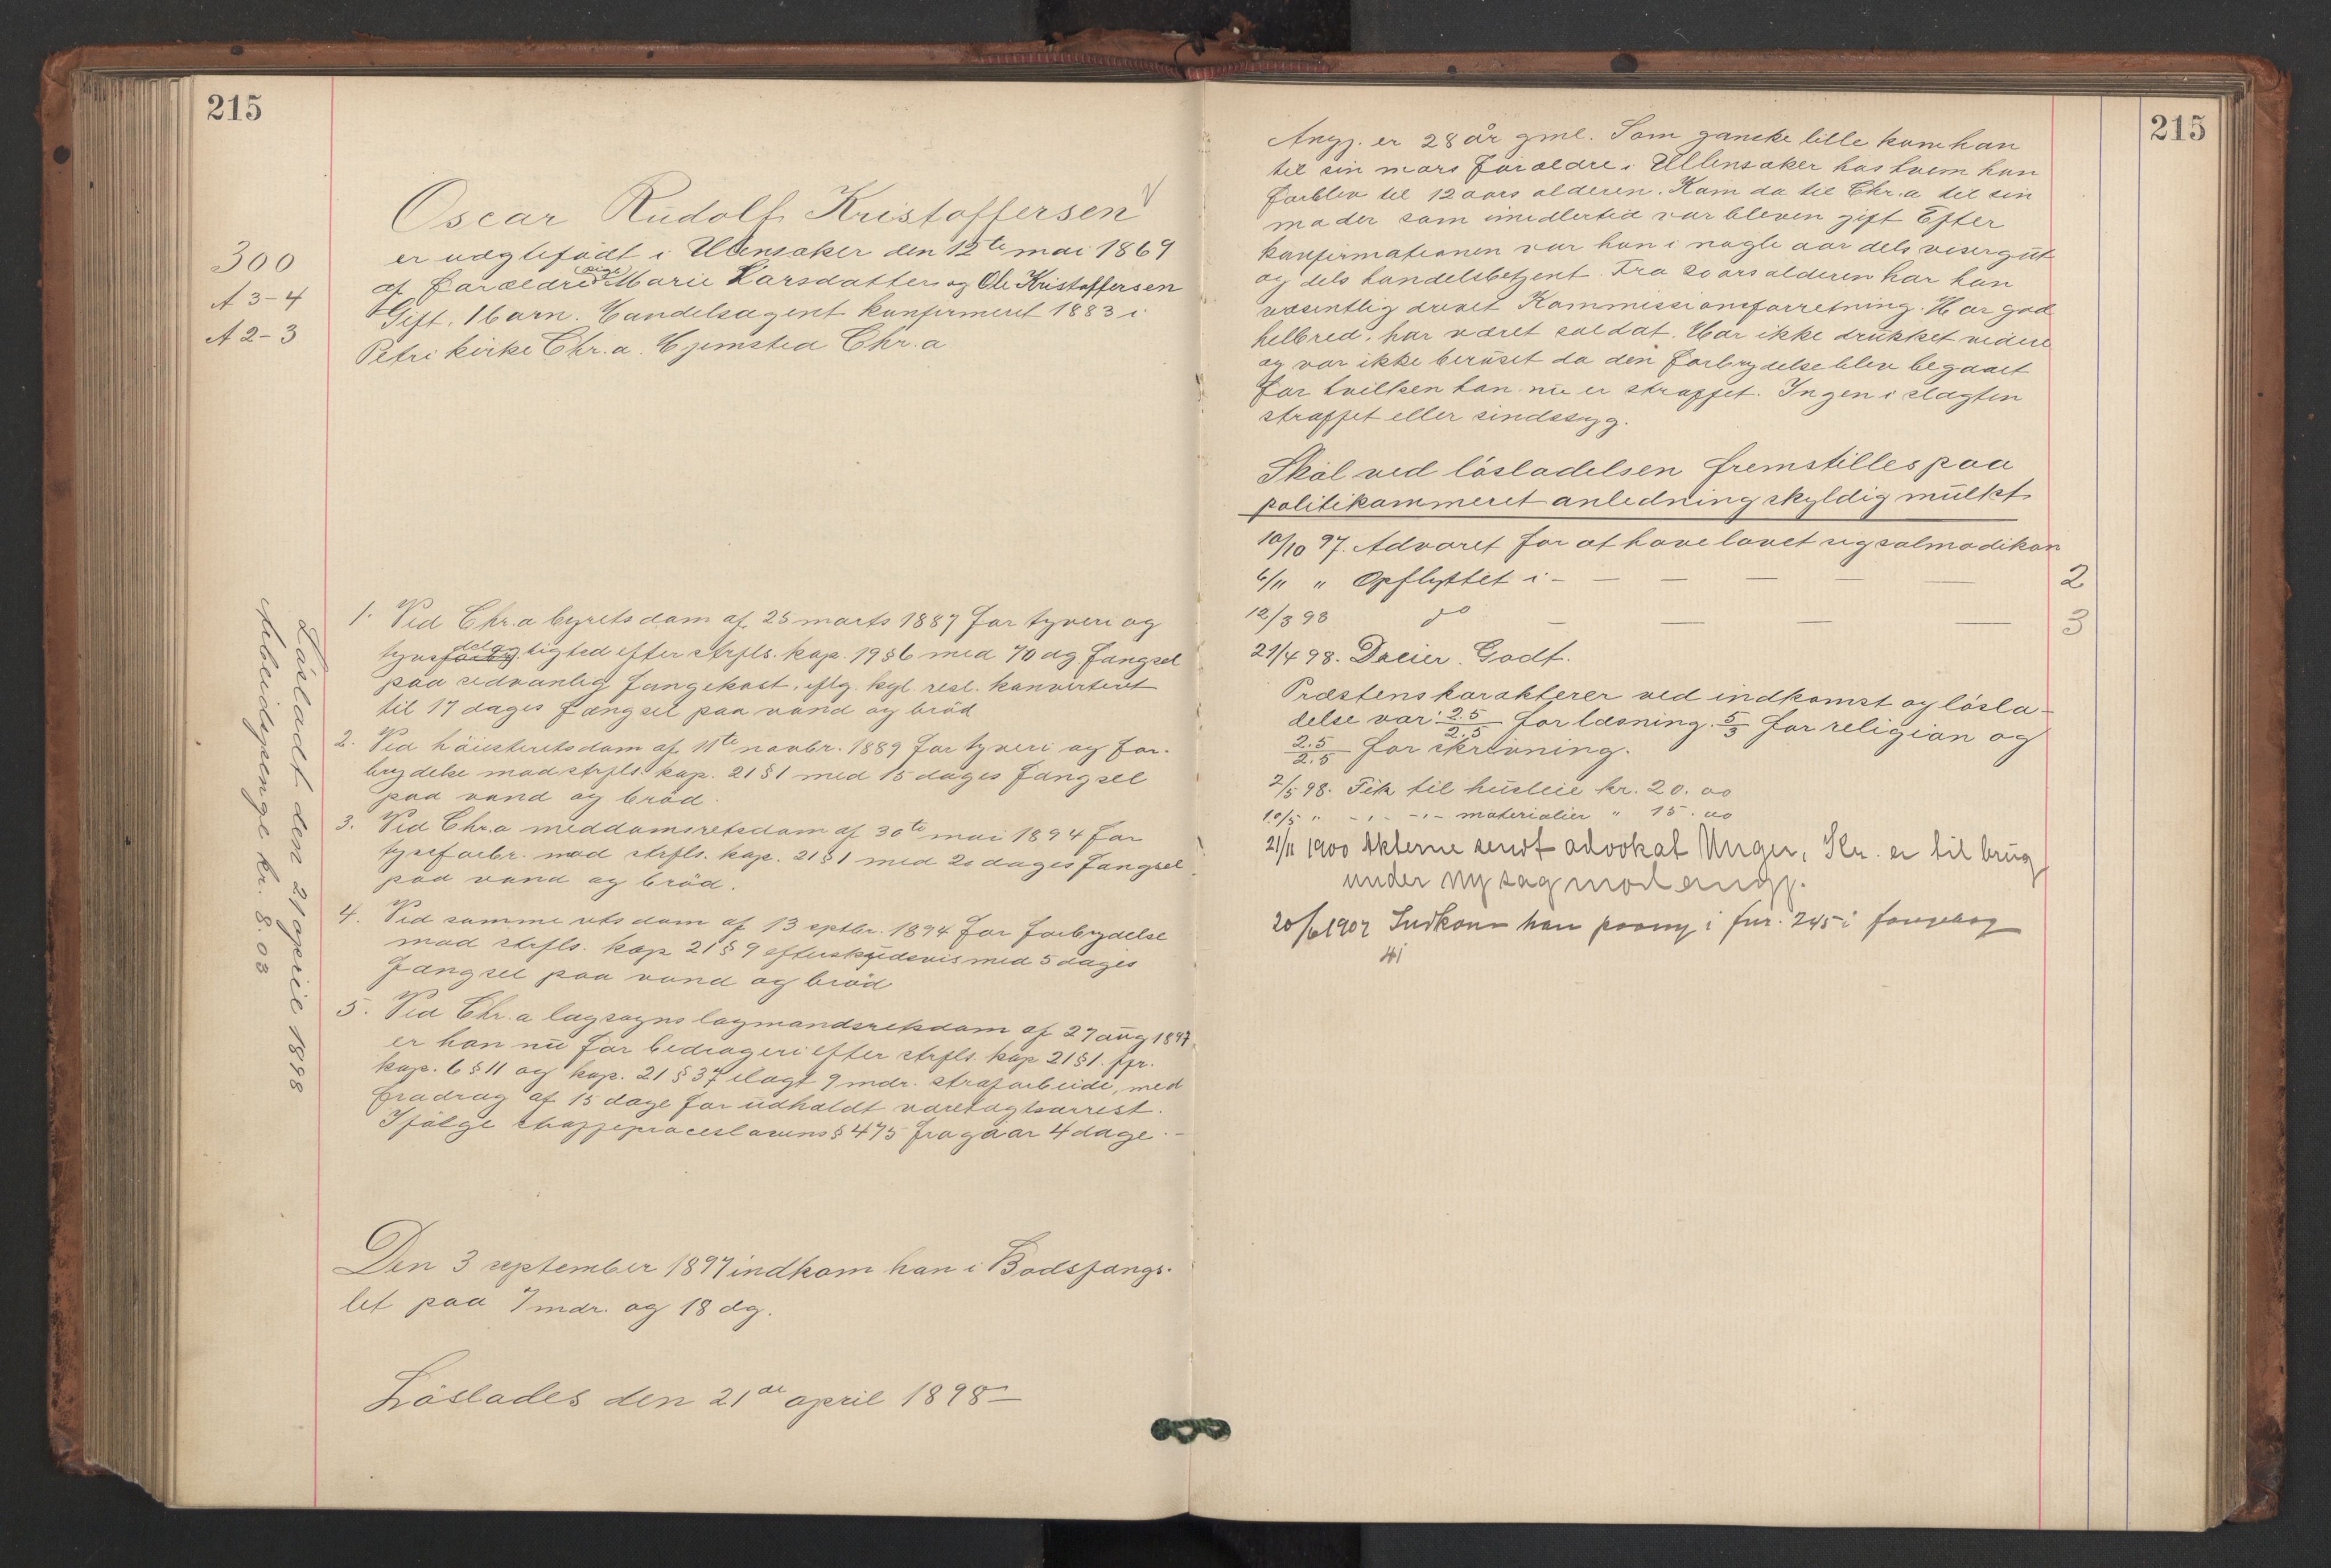 215
300
A 3-4
A 2-3
Oscar Rudolf Kristoffersen
er uægtefødt i Ullensaker den 12te mai 1869
af forældre pige Marie Larsdatter og Ole Kristoffersen
Gift, 1 barn. Handelsagent konfirmeret 1883 i
Petri kirke Chr.a. Hjemsted Chr.a
1. Ved Chr.a byretsdom af 25 marts 1887 for tyveri og
tyvsdelagtighed efter strfls. kap. 19 § 6 med 70 dg. fængsel
paa sedvanlig fangekost, iflg. kgl. resl. konverteret
til 17 dages fængsel paa vand og brød
2. Ved høiesteretsdom af 11te novbr. 1889 for tyveri og for-
brydelse mod strfls. kap. 21 § 1 med 15 dages fængsel
paa vand og brød.
3. Ved Chr.a meddomsretsdom af 30te mai 1894 for
forbr. mod strfls. kap. 21 § 1 med 20 dages fængsel
paa vand og brød.
4. Ved samme rets dom af 13 septbr. 1894 for forbrydelse
mod strfls. kap 21 § 9 efterskudsvis med 5 dages
fængsel paa vand og brød
5. Ved Chr.a lagsogns lagmandsretsdom af 27 aug 1897
er han nu for bedrageri efter strfls. kap 21 § 1. jfr.
kap. 6 § 11 og kap. 21 § 37 ilagt 9 mdr. strafarbeide, med
fradrag af 15 dage for udholdt varetægtsarrest.
Ifølge straffeproceslovens § 475 fragaar 4 dage. -
Den 3 september 1897 indkom han i Bodsfængs-
let paa 7 mdr. og 18 dg.
Løslades den 21de april 1898 -
Løsladt den 21 april 1898
Arbeidspenge kr. 8.03
215
Angj. er 28 år gml. Som ganske lille kom han
til sin mors forældre i Ullensaker hos hvem han
forblev til 12 aars alderen. Kom da til Chr.a til sin
moder som imidlertid var bleven gift Efter
konfirmationen var han i nogle aar dels visergut
og dels handelsbetjent. Fra 20 ars alderen har han
væsentlig drevet Kommissionsforretning. Har god
helbred, har været soldat. Har ikke drukket videre
og var ikke beruset da den forbrydelse blev begaaet
for hvilken han nu er straffet. Ingen i slægten
straffet eller sindssyg.
Skal ved løsladelsen fremstilles paa
politikammeret anledning skyldig mulkt
10/10 97. Advaret for at have lavet sig salmodikon
6/11 " Opflyttet i - - - - - - 2
12/3 98 do - - - - 3
21/4 98. Dreier. Godt.
Præstens karakterer ved indkomst og løsla-
delse var: 2.5/2.5 for læsning. 5/3 for religion og
2.5/2.5 for skrivning.
2/5 98. Fik til husleie kr. 20.00
10/5 " - " - - " - materialier " 15.00
21/11 1900 Akterne sendt advokat Unger, Kr. a til brug
under ny sag mod angj.
20/6 1902 Indkom han paany i fnr. 245 i fangebog